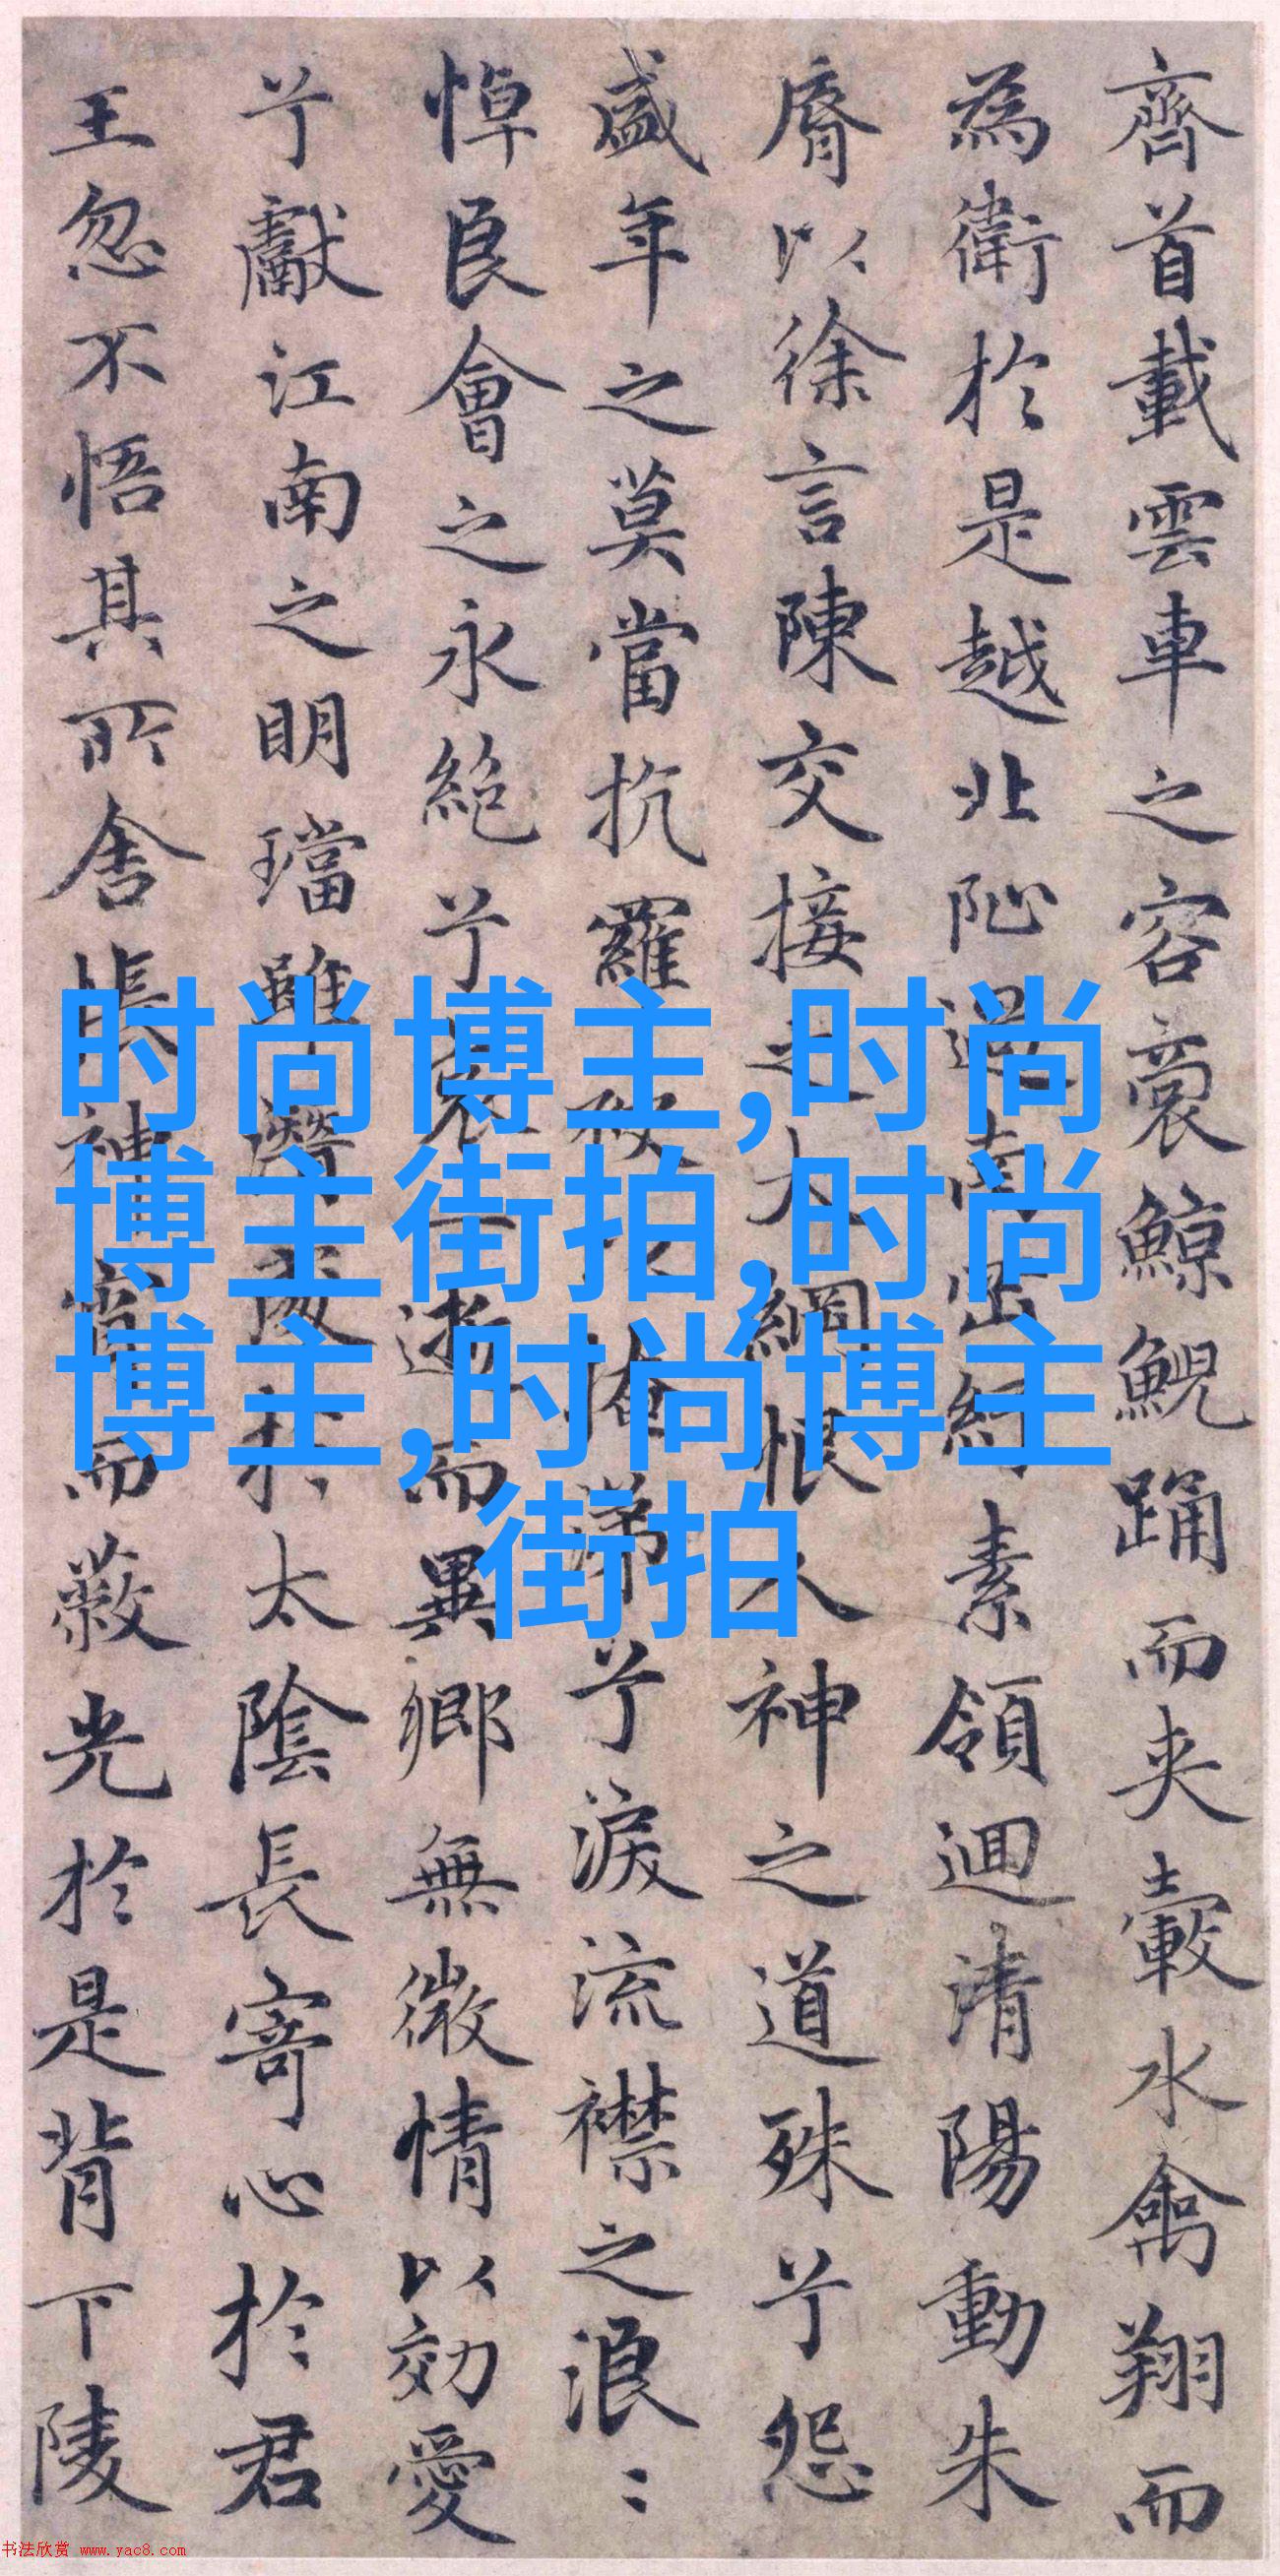 齊首載雲車之容裔鯨鯢踊而夾轂水禽翔而
為衛於是越北沚過南岡紆素領迴清陽動朱
脣以徐言陳交接之大綱恨人神之道殊兮怨
盛年之莫當抗羅袂以掩涕兮淚流襟之浪〻
悼良會之永絕兮哀一逝而異鄉無微情以効愛
兮獻江南之明璫雖潛處於太陰長寄心於君
王忽不悟其所舍悵神宵而蔽光於是背下陵
时尚博主,时尚
博主街拍,时尚
博主,时尚博主
街拍
书法欣赏 www.yac8.com